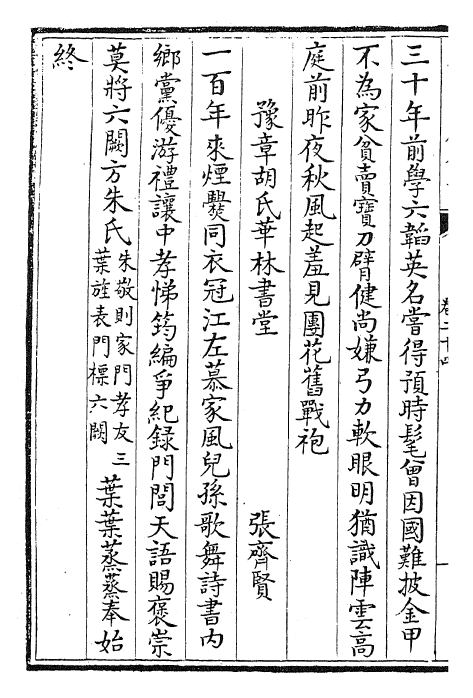 三十年前學六韜英名嘗得預時髦曾因國難披金甲
不為家貧賣寶刀臂健尚嫌弓力軟眼明猶識陣雲高
庭前昨夜秋風起羞見團花舊戰袍
豫章胡氏華林書堂 張齊賢
一百年來煙爨同衣冠江左慕家風兒孫歌舞詩書内
鄉黨優游禮讓中孝悌筠編爭紀録門閭天語賜褒崇
莫將六闕方朱氏朱敬則家門孝友三葉旌表門標六闕葉葉蒸蒸奉始
終
卷二十四